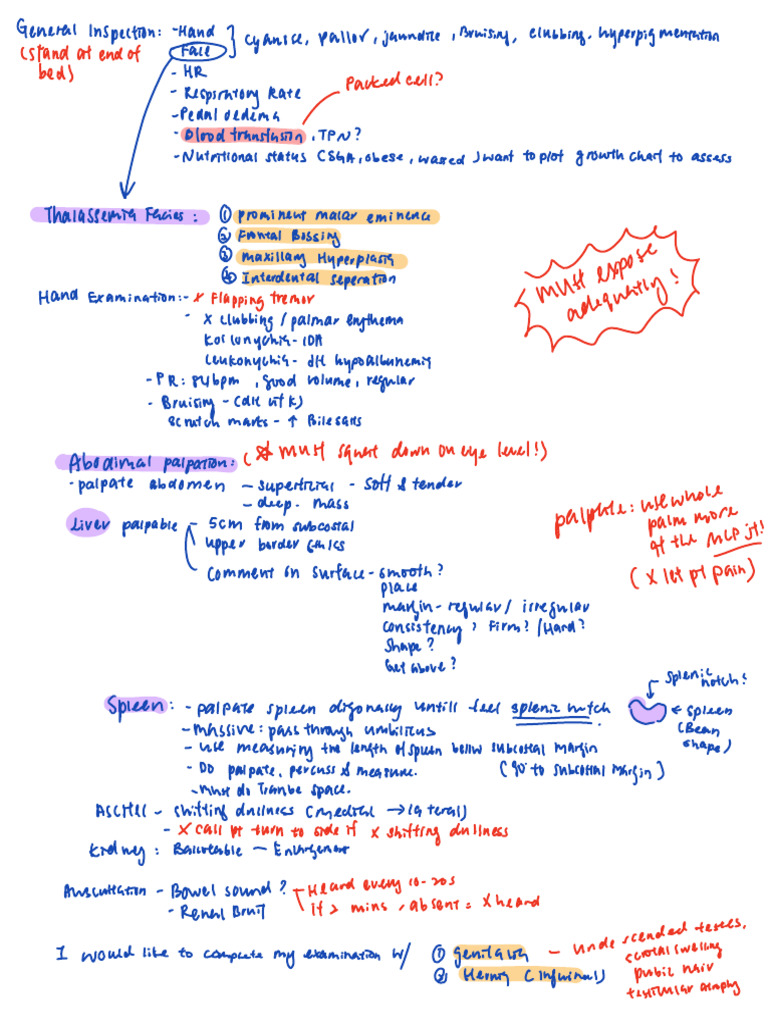 General Inspection: - Hand
(stand at end of bed)
Face } cyanose, pallor, jaundice, Bruising, clubbing, hyperpigmentation
- HR
- Respiratory Rate
- Pedal oedema
Packed cell?
- Blood transfusion, TPN?
- Nutritional status (SGA, obese, wasted) want to plot growth chart to assess
Thalassemia Facies: ① prominent malar eminence
② Frontal Bossing
③ Maxillary Hyperplasia
④ Interdental seperation
MUST expose adequately!
Hand Examination:- x Flapping tremor
- x clubbing / palmar erythema
Koilonychia - IDA
Leukonychia - dt hypoalbunemia
- PR: 84bpm, good volume, regular
- Bruising - (dt vit K)
scratch marks - ↑ Bile salts
Abdominal palpation: (* MUST squat down on eye level!)
- palpate abdomen - superficial - soft & tender
- deep - mass
Liver palpable - 5cm from subcostal
upper border
Comment on surface - smooth?
place
margin - regular / irregular
consistency > Firm? / Hard?
shape?
Get above?
palpate: use whole
palm more
at the MCP jt!
(x let pt pain)
Spleen: - palpate spleen digonally untill feel splenic notch
- Massive: pass through umbilicus
- use measuring the length of spleen below subcostal margin
- Do palpate, percuss & measure. (90° to subcostal margin)
- Must do Traube space.
splenic notch!
← spleen
(Bean shape)
- shifting dullness (medial → lateral)
- x call pt turn to side if x shifting dullness
Kidney: Ballotable - Enlargement
Auscultation - Bowel sound? - Heard every 10-20s
if > mins, absent = x heard
- Renal Bruit
I would like to complete my examination w/ ① genitalia - undescended testes,
scrotal swelling
pubic hair
testicular atrophy
② Hernia (inguinal)